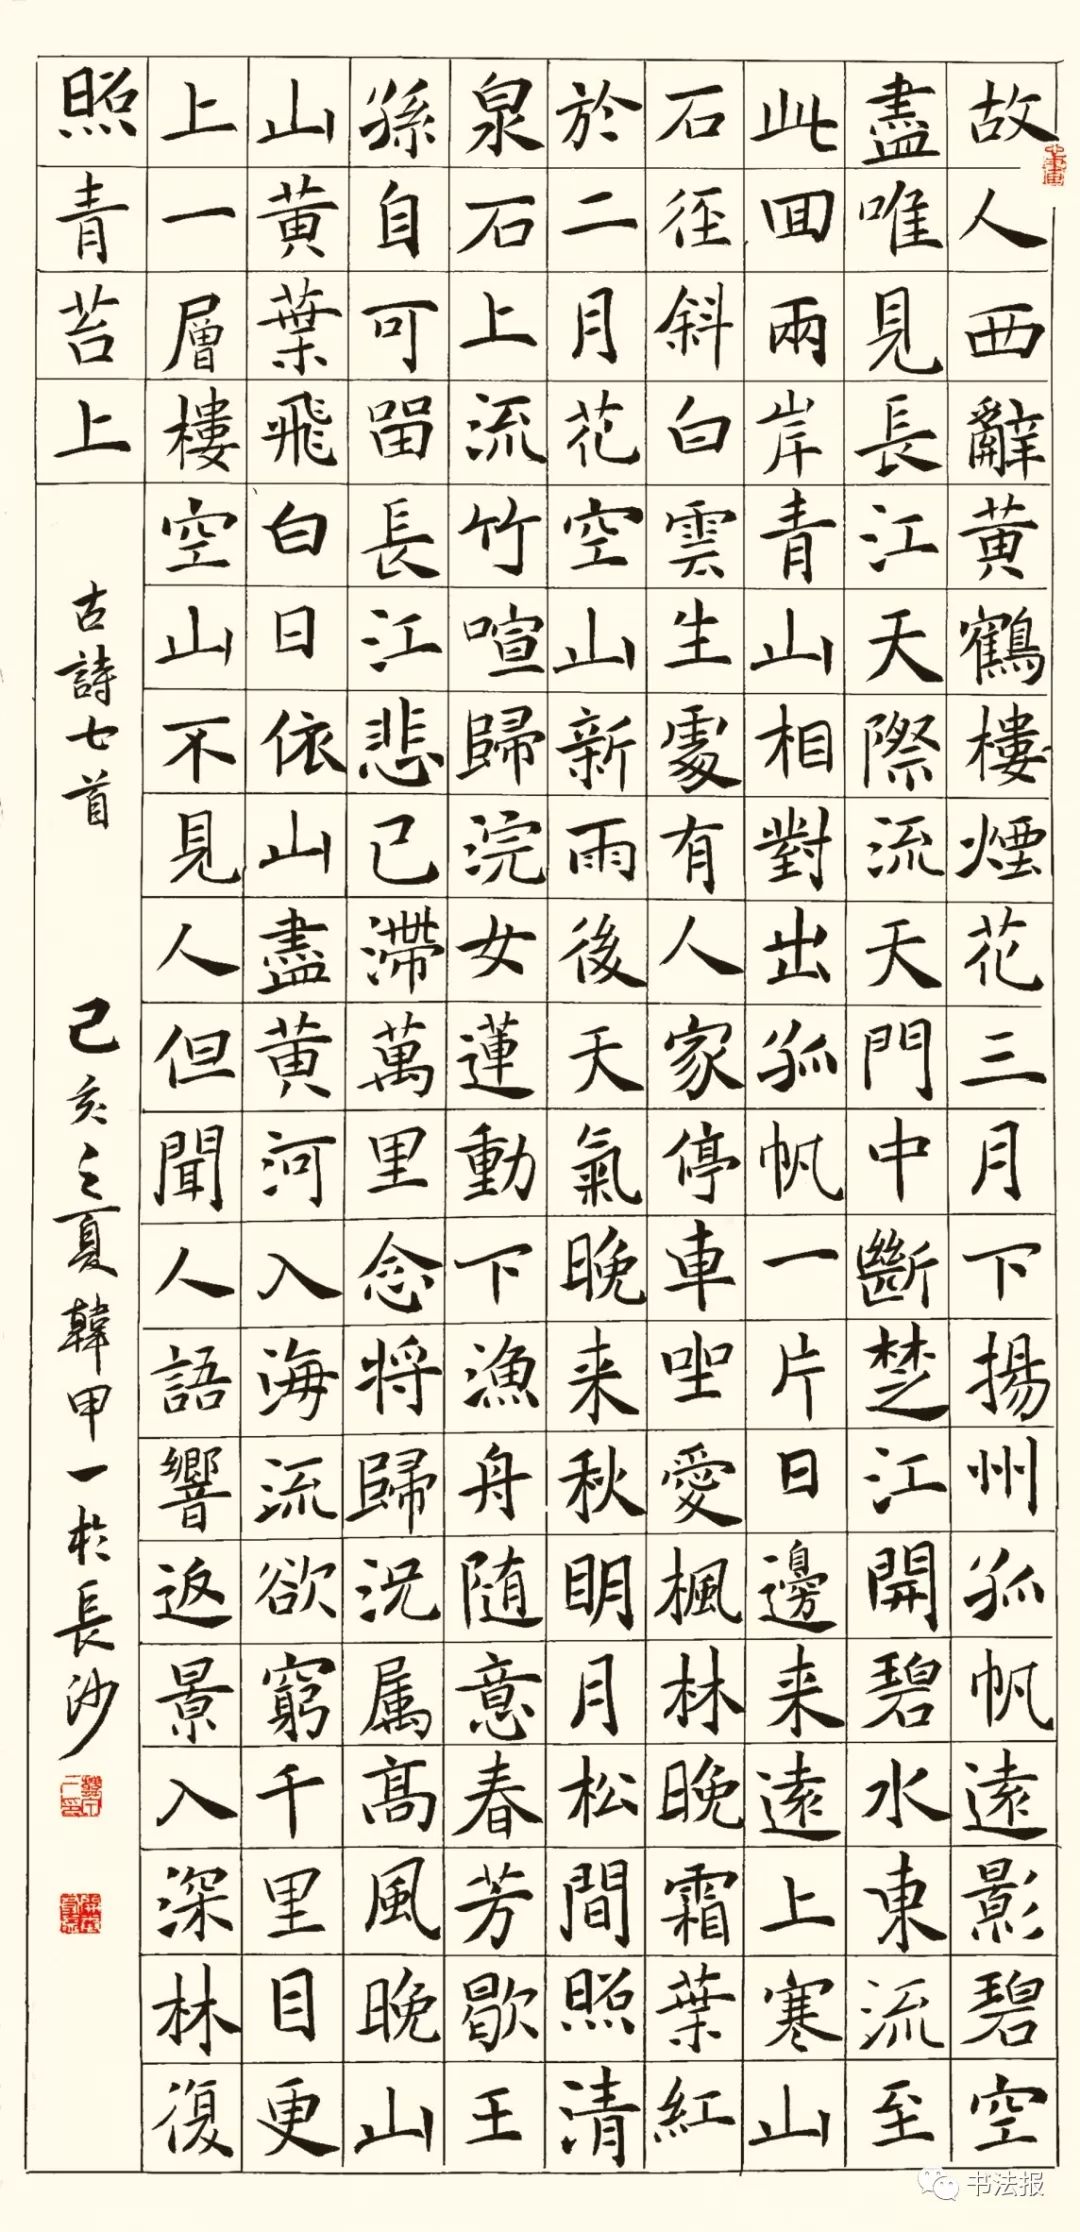 故人西辭黄鶴樓煙花三月下揚州孤帆遠影碧空
盡唯見長江天際流天門中斷楚江開碧水東流至
此回兩岸青山相對出孤帆一片日邊来遠上寒山
石徑斜白雲生處有人家停車坐愛楓林晚霜葉紅
於二月花空山新雨後天氣晚来秋明月松間照清
泉石上流竹喧歸浣女蓮動下漁舟随意春芳歇王
孫自可留長江悲已滯萬里念将歸況属高風晚山
山黄葉飛白日依山盡黄河入海流欲窮千里目更
上一層樓空山不見人但聞人語響返景入深林復
照青苔上
古詩七首 己亥之夏韓甲一於長沙
书法报